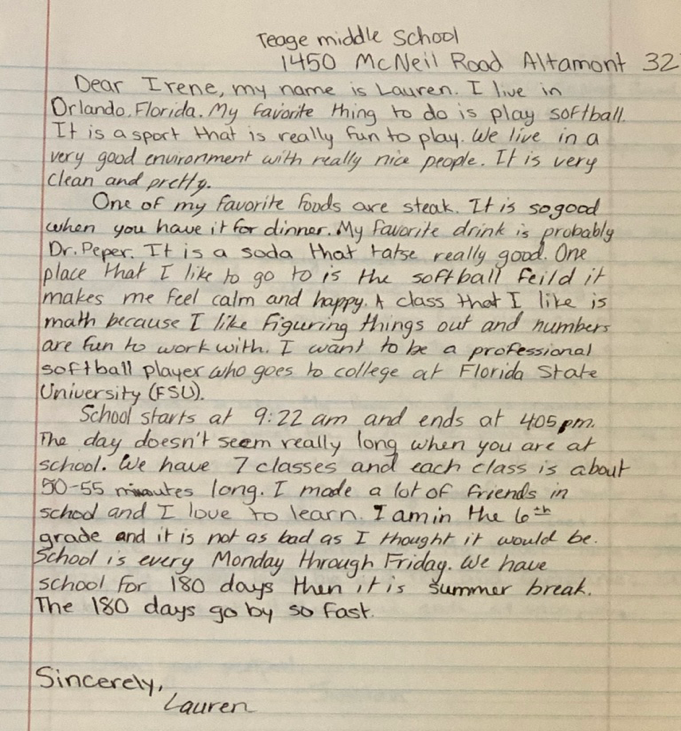 Teage middle School
1450 McNeil Road Altamont 32
Dear Irene, my name is Lauren. I live in
Orlando, Florida. My favorite thing to do is play softball.
It is a sport that is really fun to play. We live in a
very good environment with really nice people. It is very
clean and pretty.
One of my favorite foods are steak. It is so good
when you have it for dinner. My favorite drink is probably
Dr. Peper. It is a soda that tatse really good. One
place that I like to go to is the softball feild it
makes me feel calm and happy. A class that I like is
math because I like figuring things out and numbers
are fun to work with. I want to be a professional
softball player who goes to college at Florida State
University (FSU).
School starts at 9:22 am and ends at 405 pm.
The day doesn't seem really long when you are at
school. We have 7 classes and each class is about
50-55 minutes long. I made a lot of friends in
school and I love to learn. I am in the 6th
grade and it is not as bad as I thought it would be.
School is every Monday through Friday. We have
school for 180 days then it is summer break.
The 180 days go by so fast.
Sincerely,
Lauren